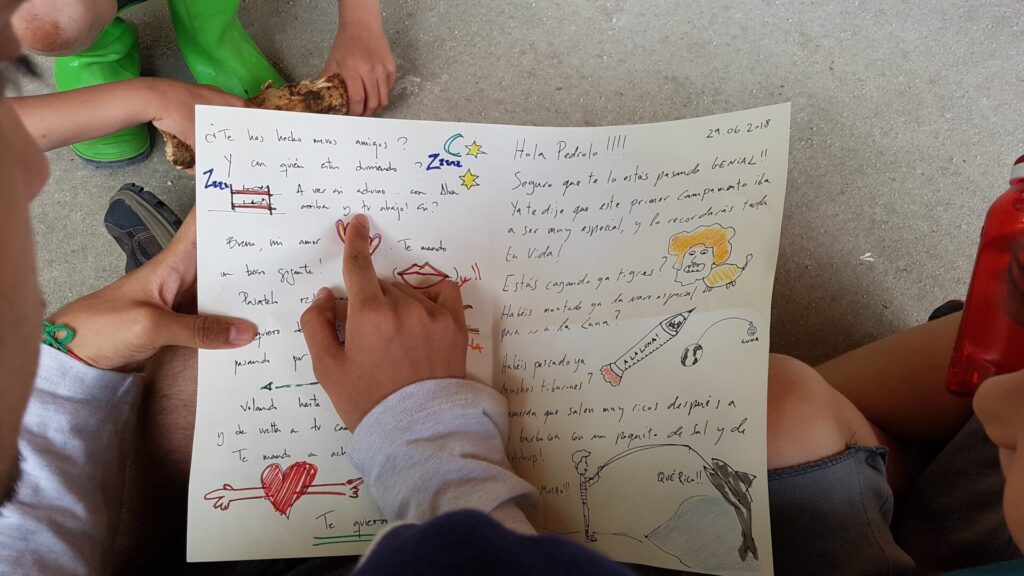 29.06.2018
Hola Pedrolo !!!!
Seguro que te lo estás pasando GENIAL!!
Ya te dije que este primer campamento iba
a ser muy especial, y lo recordarás toda
tu vida!
Estás cazando ya tigres?
Habéis montado ya la nave espacial
para ir a la Luna?
A LA LUNA!
LUNA
Habéis pescado ya
muchos tiburones?
salen muy ricos después a
barbacoa con un poquito de sal y de
QUÉ RICO!!
¿Te has hecho nuevos amigos?
Y con quién estás durmiendo?
Zzzz
Zzzz
A ver si adivino... con Alba
arriba y tú abajo! Eh?
Bueno, mi amor
Te mando
un beso gigante!
Pásatelo
quiero
pasando por
volando hasta
y de vuelta a tu
Te mando un
Te quiero